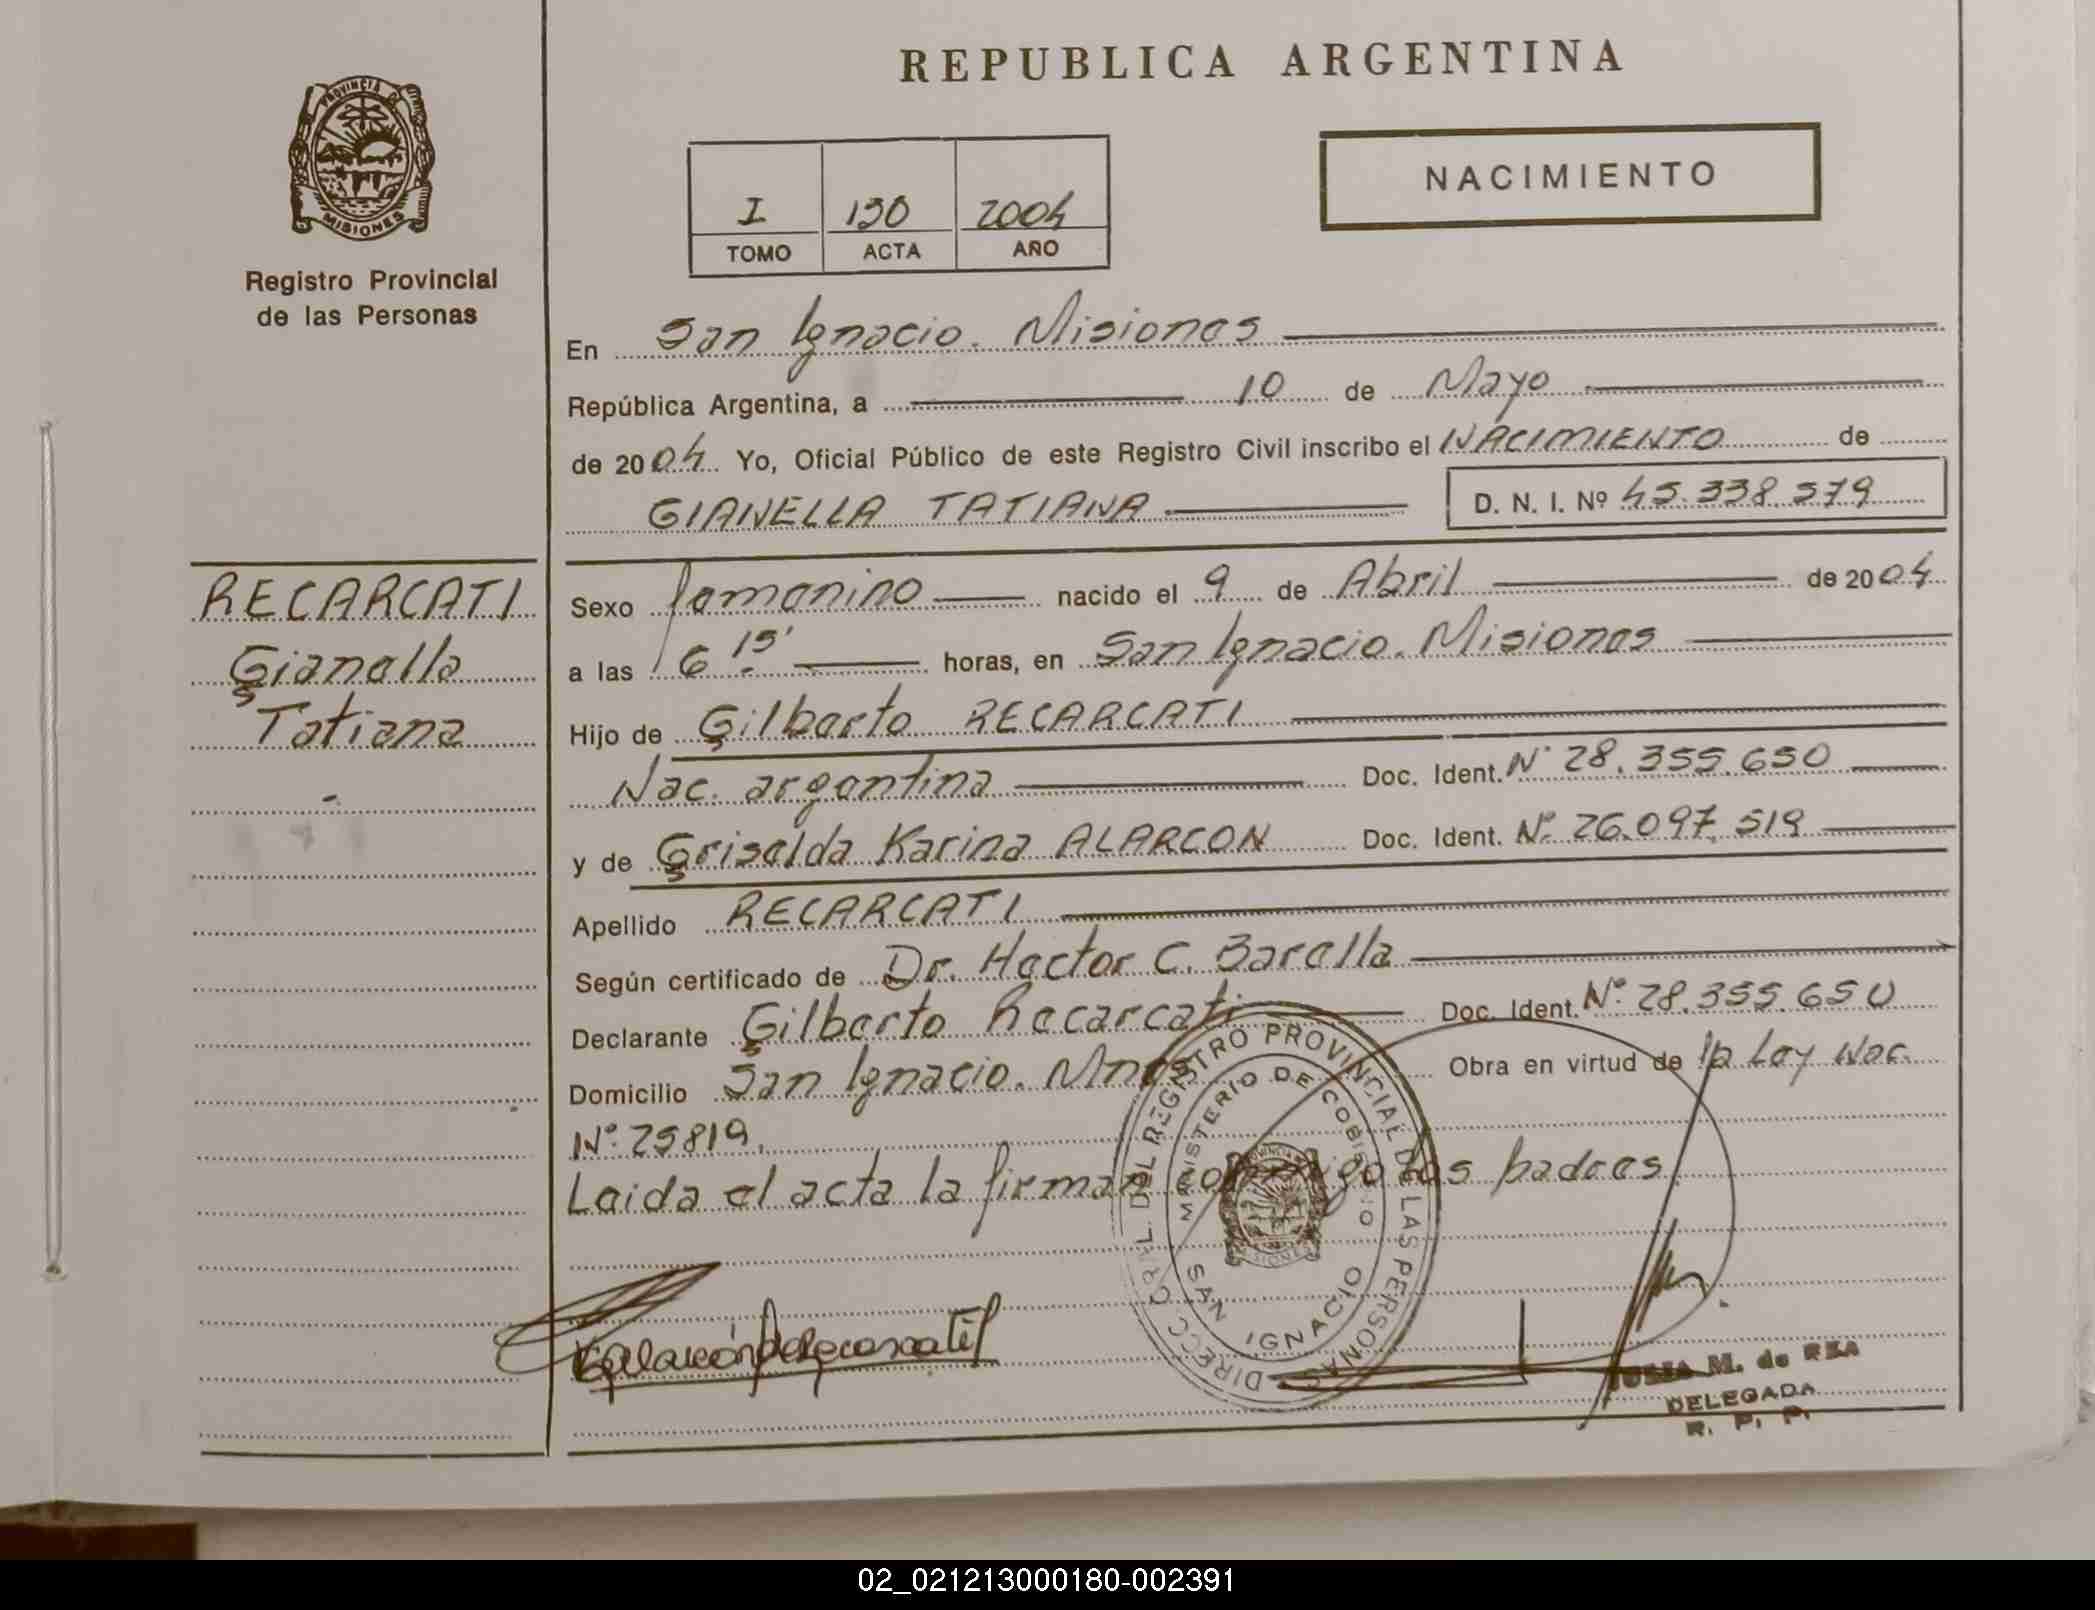 REPUBLICA ARGENTINA
PROVINCIA DE
MISIONES
Registro Provincial
de las Personas
NACIMIENTO
I 130 2004
TOMO ACTA AÑO
En San Ignacio. Misiones
República Argentina, a 10 de Mayo
de 2004 Yo, Oficial Público de este Registro Civil inscribo el NACIMIENTO de
GIANELLA TATIANA D. N. I. Nº 45.338.579
RECARCATI
Gianella
Tatiana
Sexo femenino nacido el 9 de Abril de 2004
a las 6 15' horas, en San Ignacio. Misiones
Hijo de Gilberto RECARCATI
Nac. argentina Doc. Ident. Nº 28.355.650
y de Griselda Karina ALARCON Doc. Ident. Nº 26.097.519
Apellido RECARCATI
Según certificado de Dr. Hector C. Barella
Declarante Gilberto Recarcati Doc. Ident. Nº 28.355.650
Domicilio San Ignacio. Mnes Obra en virtud de la Ley Nac.
Nº 25819.
Leida el acta la firman conmigo los padres
DIRECC. GRAL. DEL REGISTRO PROVINCIAL DE LAS PERSONAS
MINISTERIO DE GOBIERNO
SAN IGNACIO
M. de REA
DELEGADA
R. P. P.
02_021213000180-002391